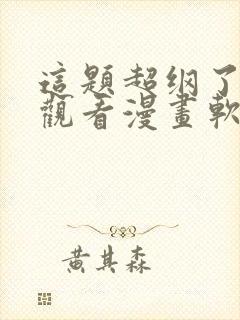 這題超纲了
觀看漫畫軟
黄其森